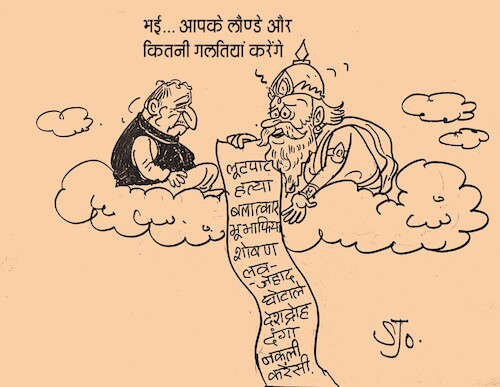 भई... आपके लौण्डे और
कितनी गलतियां करेंगे
लूटपाट
हत्या
बलात्कार
भूमाफिया
शोषण
लव-
-जहाद,
घोटाले
देशद्रोह
दंगा
नकली
करंसी.